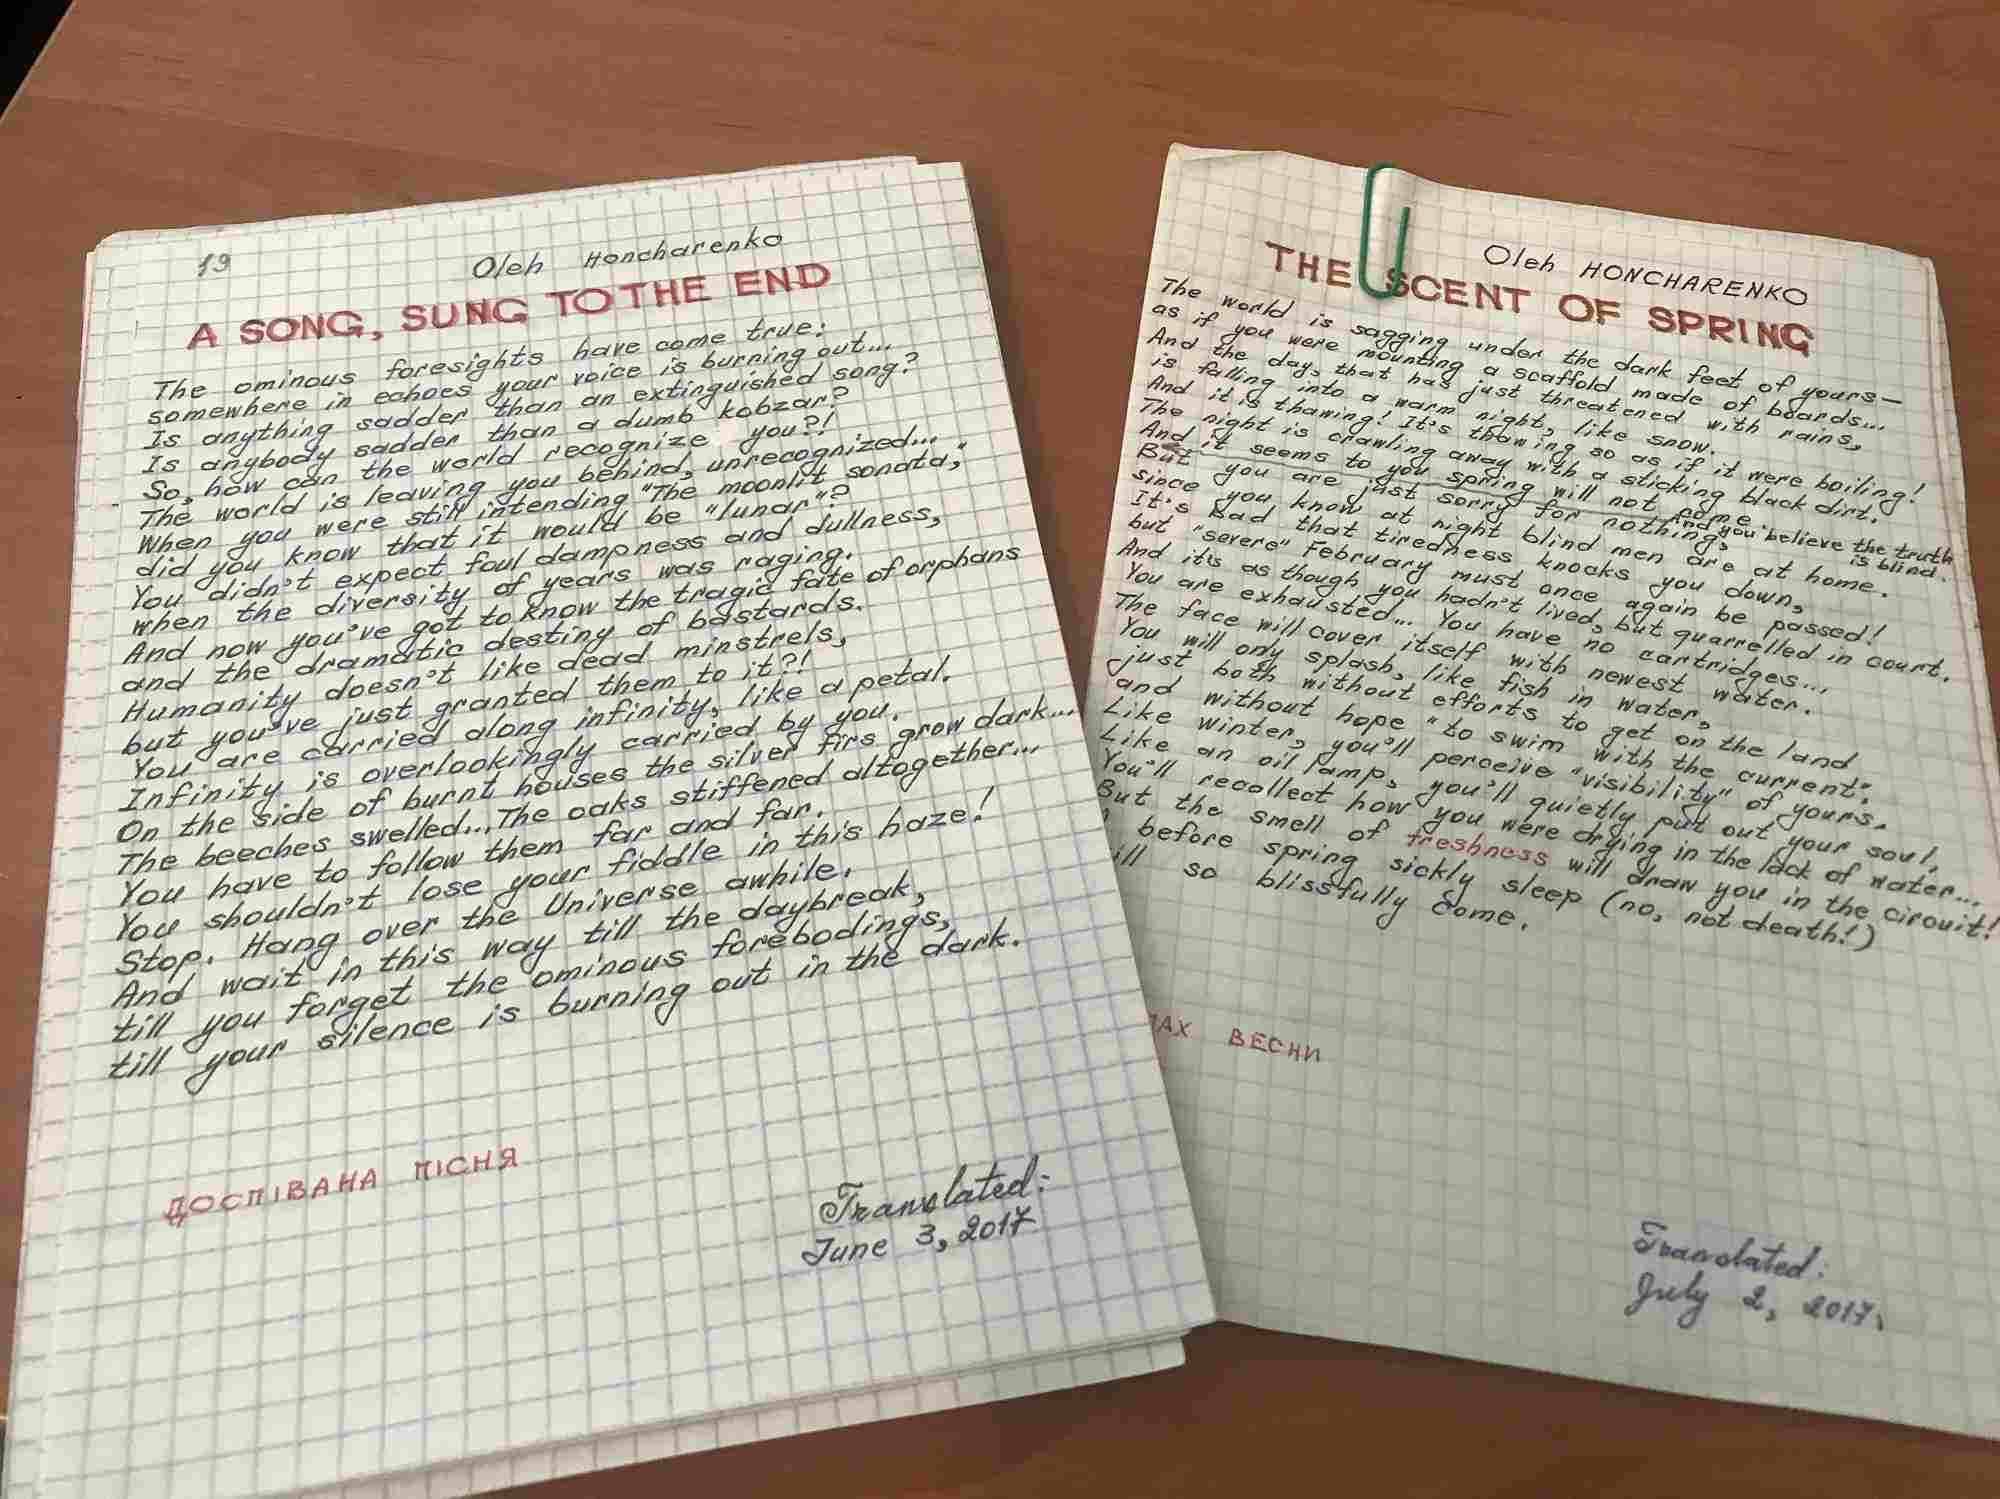 19
Oleh Honcharenko
A SONG, SUNG TO THE END
The ominous foresights have come true:
somewhere in echoes your voice is burning out...
Is anything sadder than an extinguished song?
Is anybody sadder than a dumb kobzar?
So, how can the world recognize you?!
The world is leaving you behind, unrecognized...
When you were still intending "The moonlit sonata,"
did you know that it would be "lunar"?
You didn't expect foul dampness and dullness,
when the diversity of years was raging.
And now you've got to know the tragic fate of orphans
and the dramatic destiny of bastards.
Humanity doesn't like dead minstrels,
but you've just granted them to it?!
You are carried along infinity, like a petal.
Infinity is overlookingly carried by you.
On the side of burnt houses the silver firs grow dark...
The beeches swelled... The oaks stiffened altogether...
You have to follow them far and far.
You shouldn't lose your fiddle in this haze!
Stop. Hang over the Universe awhile.
And wait in this way till the daybreak,
till you forget the ominous forebodings,
till your silence is burning out in the dark.
ДОСПІВАНА ПІСНЯ
Translated:
June 3, 2017
Oleh HONCHARENKO
THE SCENT OF SPRING
The world is sagging under the dark feet of yours—
as if you were mounting a scaffold made of boards...
And the day, that has just threatened with rains,
is falling into a warm night, like snow.
And it is thawing! It's thawing so as if it were boiling!
The night is crawling away with a sticking black dirt.
And it seems to you spring will not come.
But you are just sorry for nothing, And you believe the truth
is blind.
since you know at night blind men are at home.
It's bad that tiredness knocks you down,
but "severe" February must once again be passed!
And it's as though you hadn't lived, but quarrelled in court.
You are exhausted... You have no cartridges...
The face will cover itself with newest water.
You will only splash, like fish in water,
just both without efforts to get on the land
and without hope "to swim with the current".
Like winter, you'll perceive "visibility" of yours.
Like an oil lamp, you'll quietly put out your soul,
You'll recollect how you were drying in the lack of water...
But the smell of freshness will draw you in the circuit!
before spring sickly sleep (no, not death!)
so blissfully come.
ВЕСНИ
Translated:
July 2, 2017.